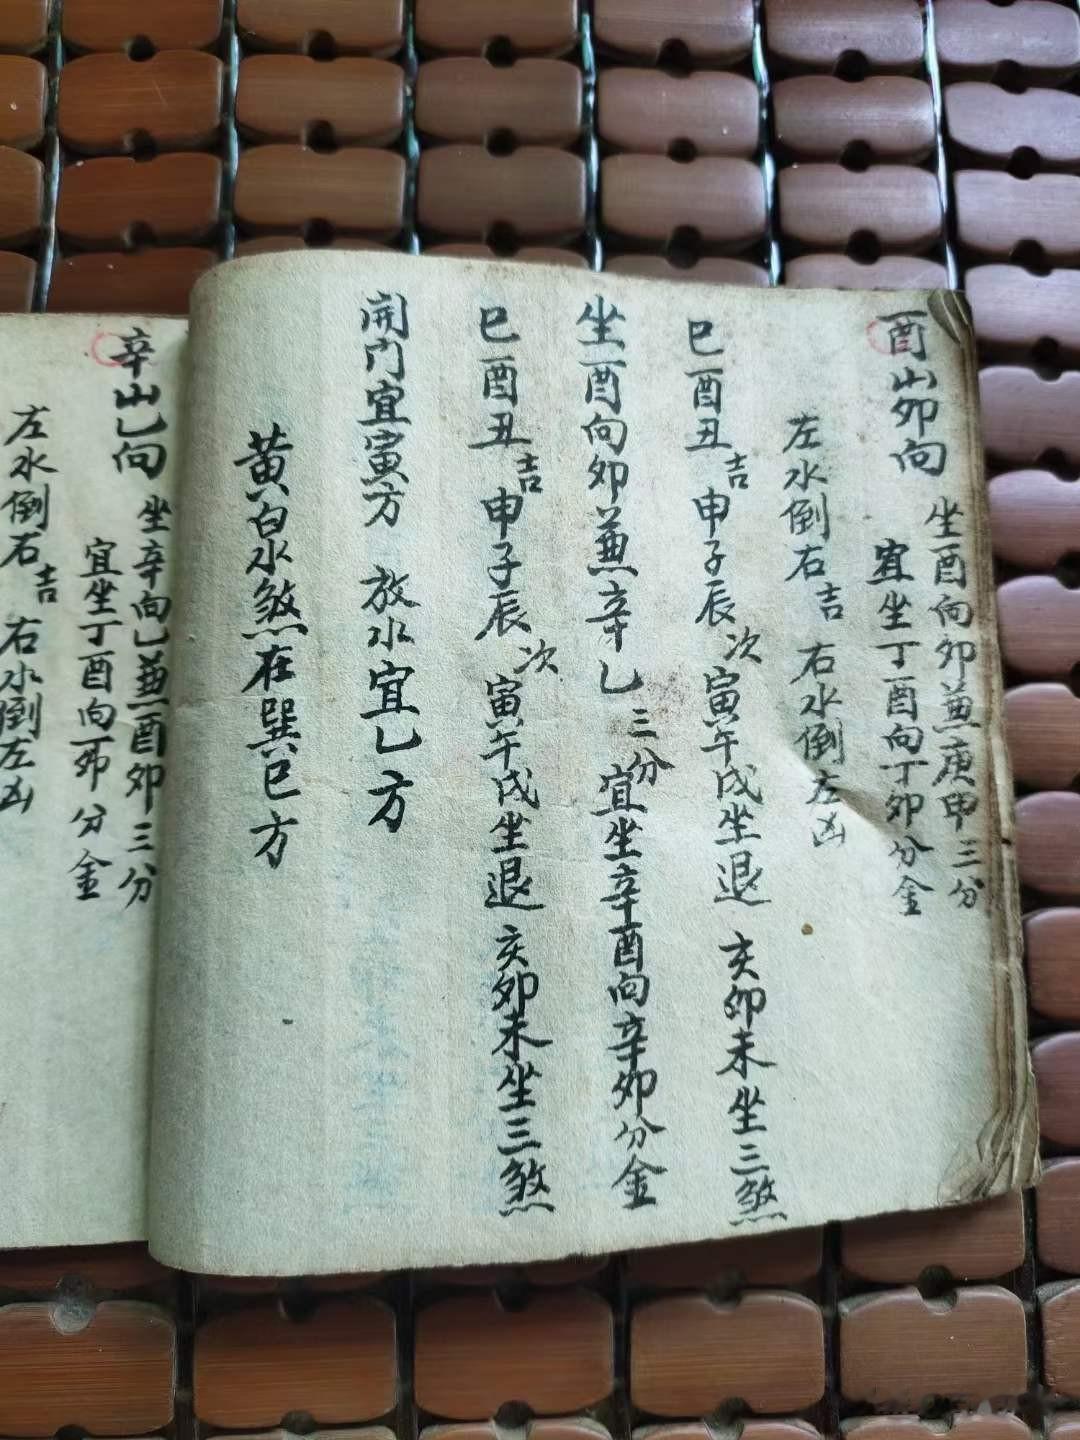 酉山卯向
坐酉向卯兼庚甲三分
宜坐丁酉向丁卯分金
左水倒右吉 右水倒左凶
巳酉丑吉 申子辰次 寅午戌坐退 亥卯未坐三煞
坐酉向卯兼辛乙三分 宜坐辛酉向辛卯分金
巳酉丑吉 申子辰次 寅午戌坐退 亥卯未坐三煞
開门宜寅方 放水宜乙方
黄白水煞在巽巳方
辛山乙向
坐辛向乙兼酉卯三分
宜坐丁酉向丁卯分金
左水倒右吉 右水倒左凶